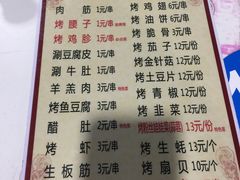 肉筋 1元/串
烤腰子
烤鸡珍
涮豆腐皮 1元/串
涮牛肚 1元/串
羊羔肉 3元/串
烤鱼豆腐 3元/串
醋肚 2元/串
烤虾 3元/串
生板筋 3元/串
烤鸡翅 6元/串
烤油饼 6元/张
烤脆骨 3元/串
烤茄子 12元/份
烤金针菇 12元/份
烤土豆片 12元/份
烤青椒 12元/份
烤韭菜 12元/份
13元/份
烤生蚝 13元/个
烤扇贝 10元/个